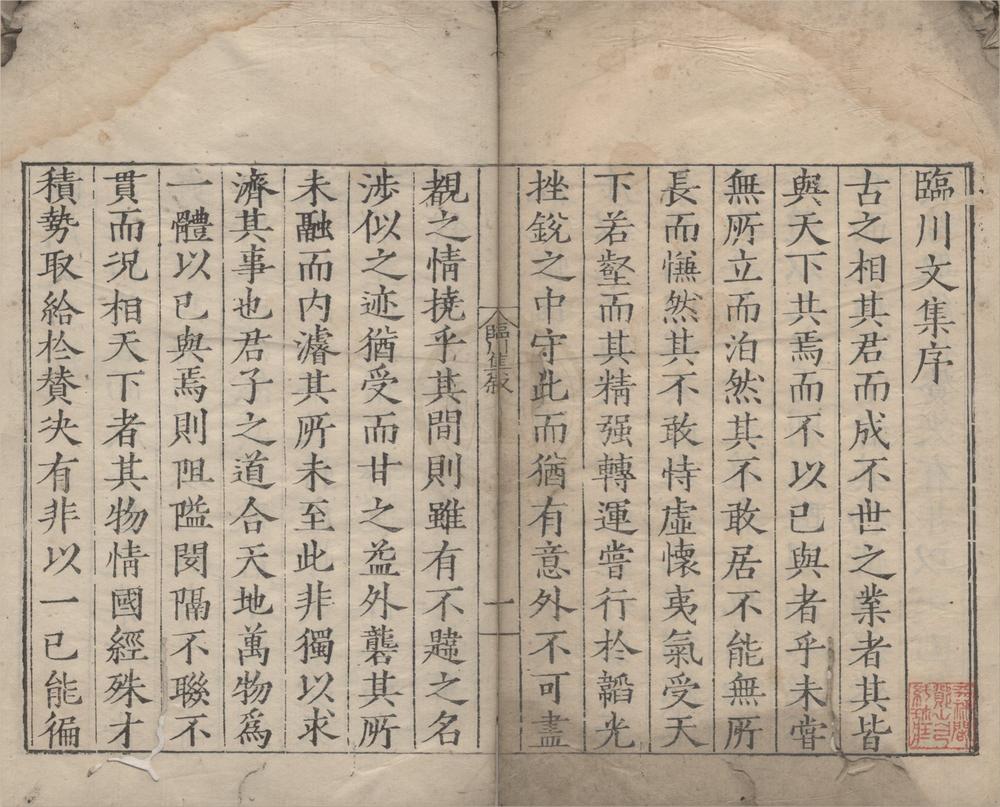 臨川文集序
古之相其君而成不世之業者其皆
與天下共焉而不以已與者乎未嘗
無所立而泊然其不敢居不能無所
長而憮然其不敢恃虛懷夷氣受天
下若壑而其精强轉運嘗行於韜光
挫銳之中守此而猶有意外不可盡
臨川集叙
一
覩之情撓乎其間則雖有不韙之名
涉似之迹猶受而甘之益外礱其所
未融而内濬其所未至此非獨以求
濟其事也君子之道合天地萬物爲
一體以已與焉則阻隘閡隔不聯不
貫而况相天下者其物情國經殊才
積勢取給於賛决有非以一已能徧